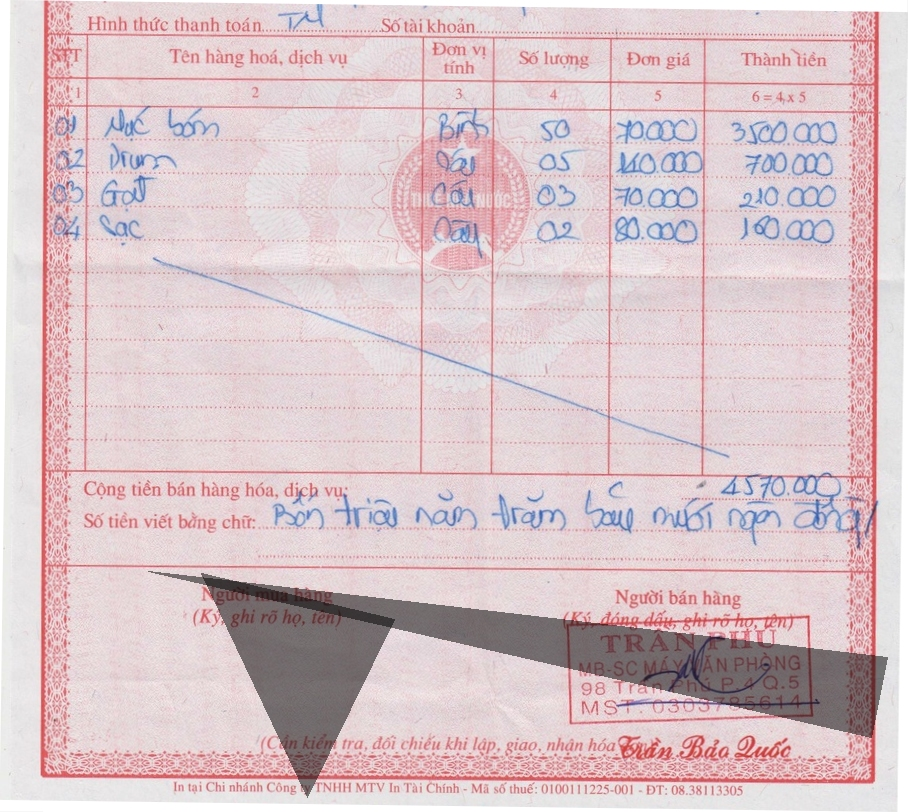 Hình thức thanh toán TM Số tài khoản
STT Tên hàng hoá, dịch vụ Đơn vị tính Số lượng Đơn giá Thành tiền
1 2 3 4 5 6 = 4 x 5
01 Mực bơm Bình 50 70.000 3500.000
02 Drum 05 140.000 700.000
03 Gạt Cây 03 70.000 210.000
04 Sạc Cây 02 80.000 160.000
Cộng tiền bán hàng hóa, dịch vụ: 4570.000
Số tiền viết bằng chữ: Bốn triệu năm trăm bảy mươi ngàn đồng
Người mua hàng Người bán hàng
(Ký, ghi rõ họ, tên) (Ký, đóng dấu, ghi rõ họ, tên)
TRẦN PHÚ
MB-SC MÁY VĂN PHÒNG
98 Trần Phú P.4 Q.5
MST: 0303785614
(Cần kiểm tra, đối chiếu khi lập, giao, nhận hóa Trần Bảo Quốc
In tại Chi nhánh Công ty TNHH MTV In Tài Chính - Mã số thuế: 0100111225-001 - ĐT: 08.38113305